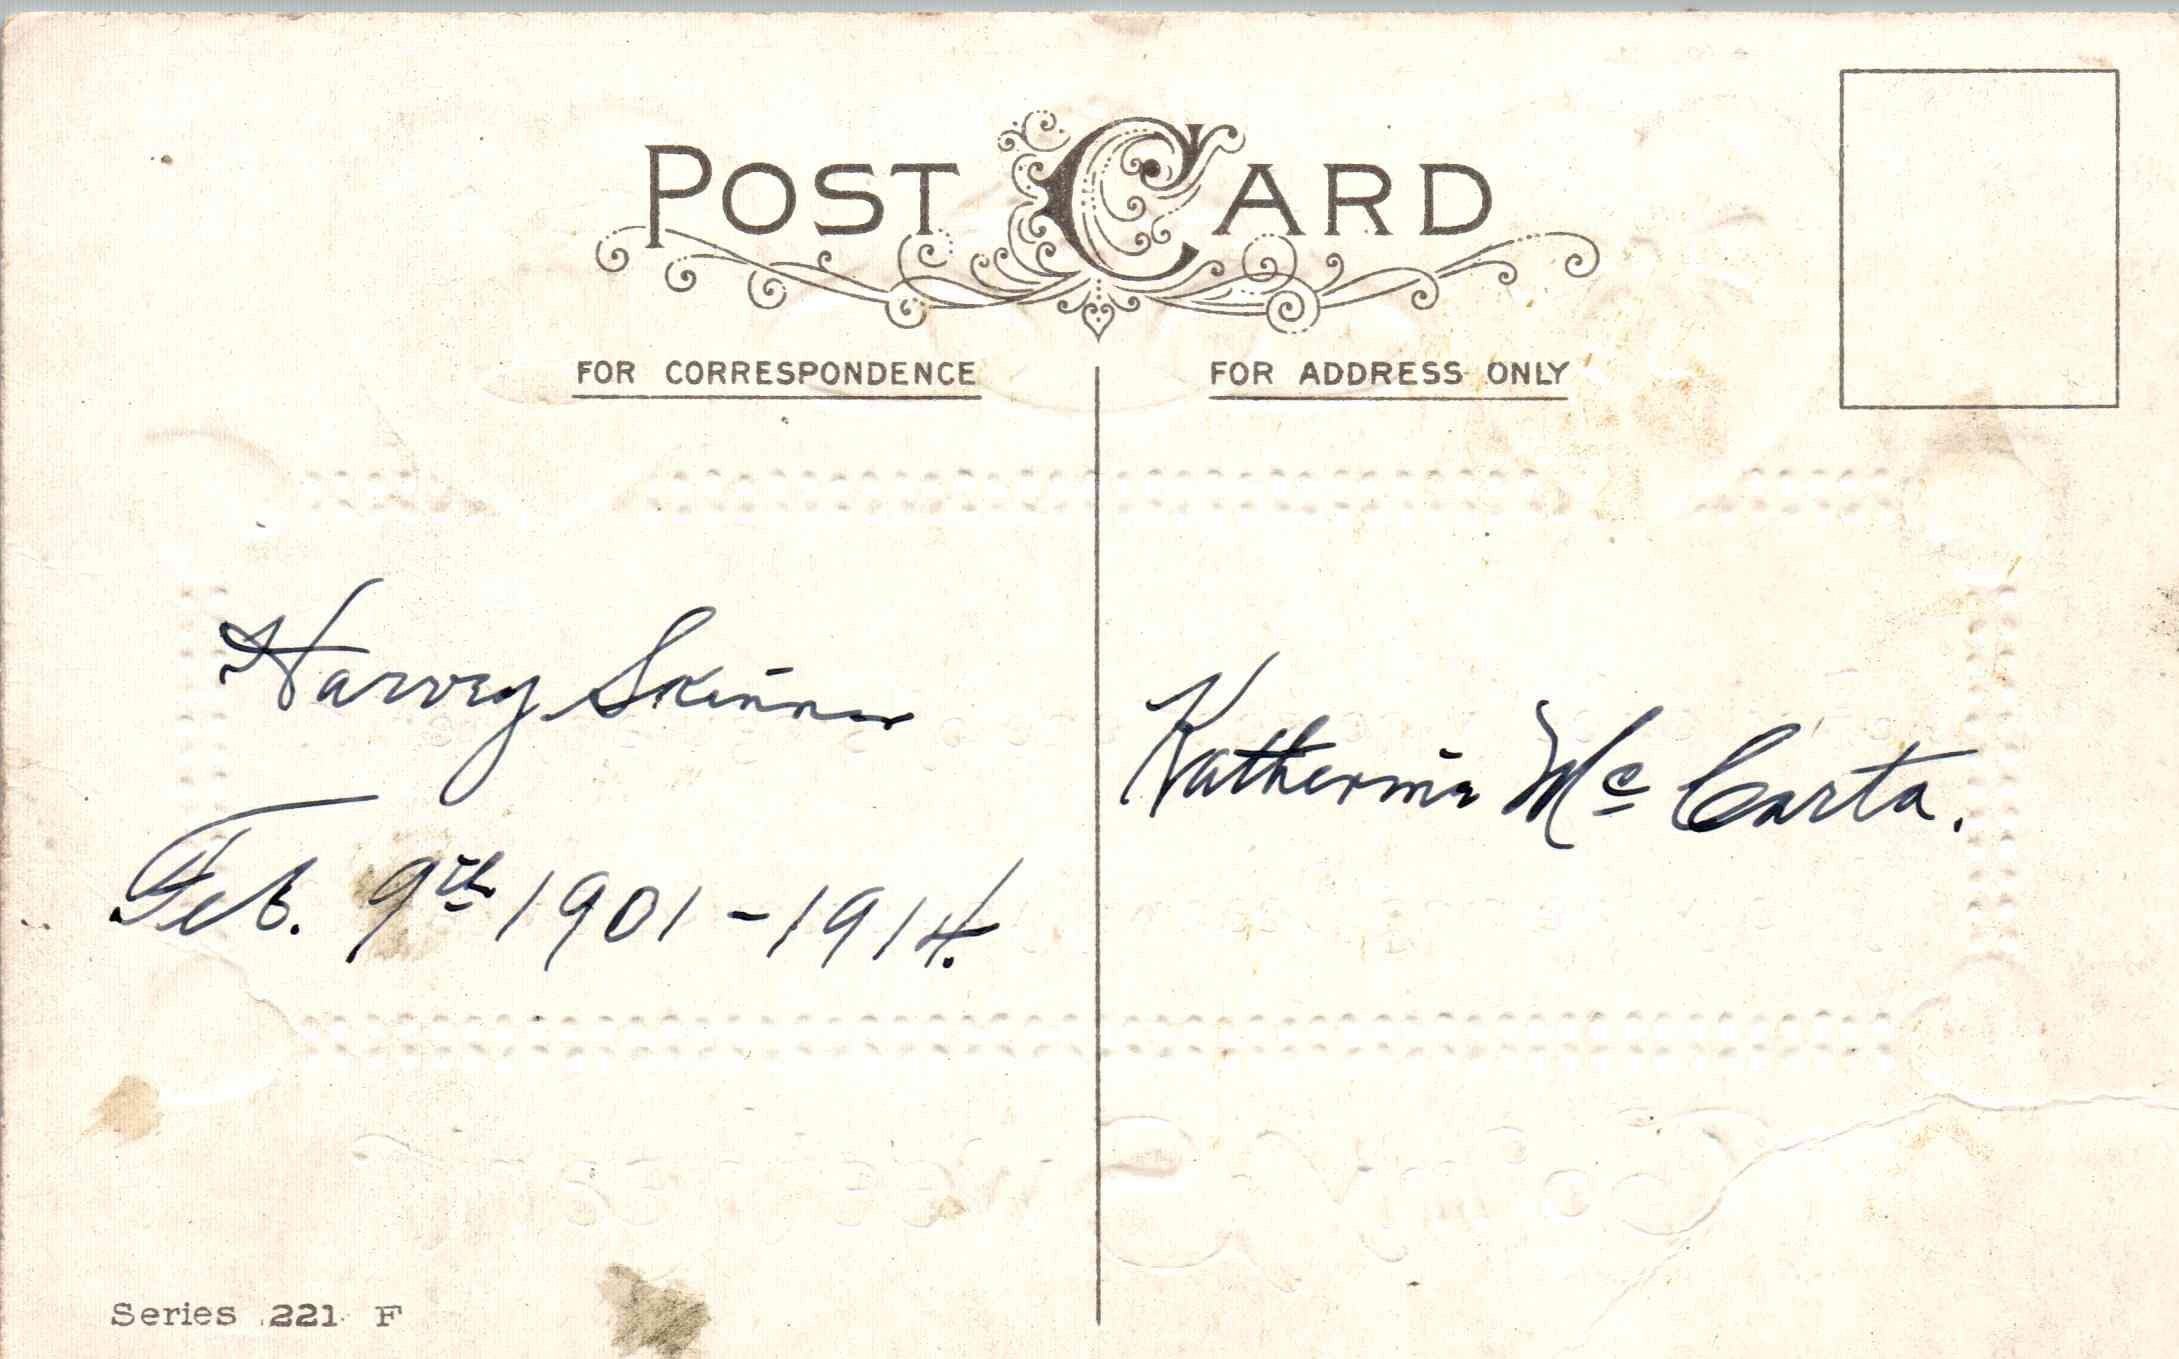 POST CARD
FOR CORRESPONDENCE
FOR ADDRESS ONLY
Harvey Skinner
Feb. 9th 1901-1914.
Katherine Mc Carta.
Series 221 F